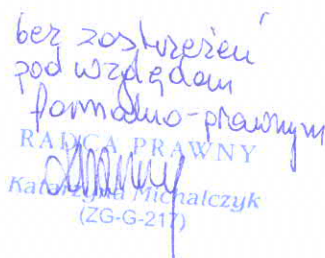 bez zastrzeżeń
pod względem
formalno-prawnym
RADCA PRAWNY
Katarzyna Michalczyk
(ZG-G-217)